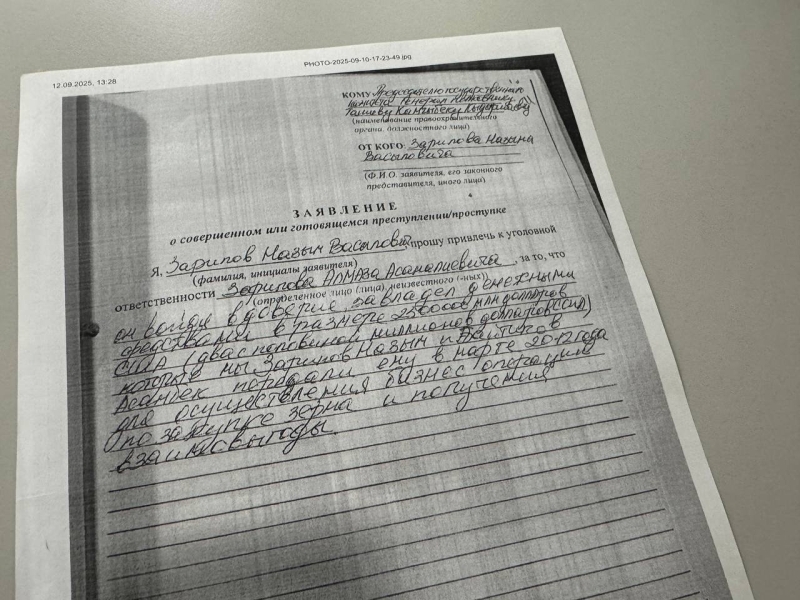 12.09.2025, 13:28
PHOTO-2025-09-10-17-23-49.jpg
КОМУ Председателю государственного
комитета генерал
Ташиеву Камчыбеку Кыдыршаевичу
(наименование правоохранительного
органа, должностного лица)
ОТ КОГО: Зарипова Назыма
Васыповича
(Ф.И.О. заявителя, его законного
представителя, иного лица)
ЗАЯВЛЕНИЕ
о совершенном или готовящемся преступлении/проступке
Я, Зарипов Назым Васыпович, прошу привлечь к уголовной
(фамилия, инициалы заявителя)
ответственности Зарипова Алмаза Асаналиевича, за то, что
(определенное лицо (лица) неизвестного (-ных))
он войдя в доверие, завладел денежными
средствами в размере долларов
США (два с половиной миллионов долларов США)
которые мы Зарипов Назым и
Асанбек передали ему в марте 2012 года
для осуществления бизнес операций
по закупке зерна и получения
взаимовыгоды.